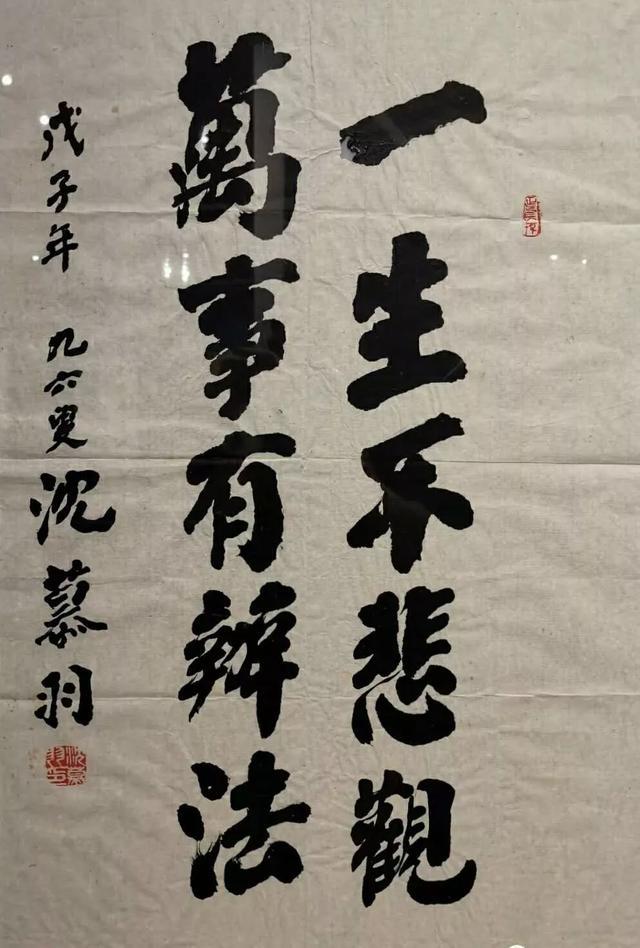 一生不悲觀
萬事有辦法
戊子年 九六叟 沈慕羽